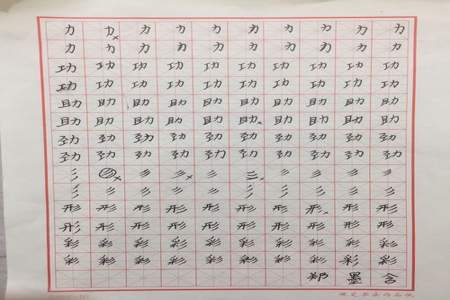 力力力力力力力力力力
力力力力力力力力力力
功功功功功功功功功功
功功功功功功功功功功
助助助助助助助助助助
助助助助助助助助助助
劲劲劲劲劲劲劲劲劲劲
劲劲劲劲劲劲劲劲劲劲
彡彡彡彡彡彡彡彡彡
彡彡彡彡彡彡彡彡彡彡
形形形形形形形形形形
形形形形形形形形形形
彩彩彩彩彩彩彩彩彩彩
彩彩彩彩彩彩彩彩彩彩
郑墨含